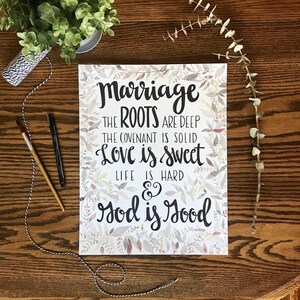 Marriage
THE ROOTS ARE DEEP
THE COVENANT IS SOLID
Love is Sweet
LIFE IS HARD
&
God is Good